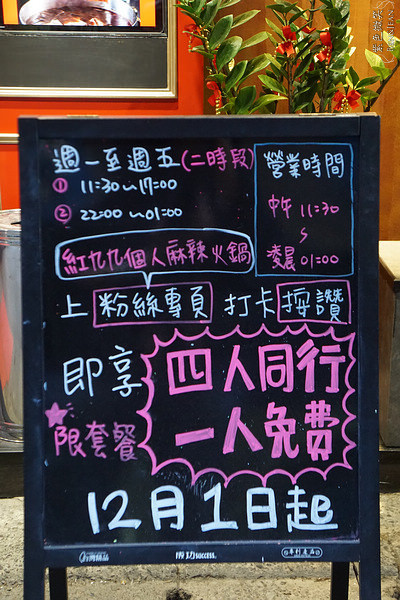 週一至週五(二時段)
① 11:30~17:00
② 22:00~01:00
營業時間
中午 11:30
~
凌晨 01:00
紅九九個人麻辣火鍋
上 粉絲專頁 打卡按讚
即享 四人同行
一人免費
★限套餐
12月1日起
成功 success.